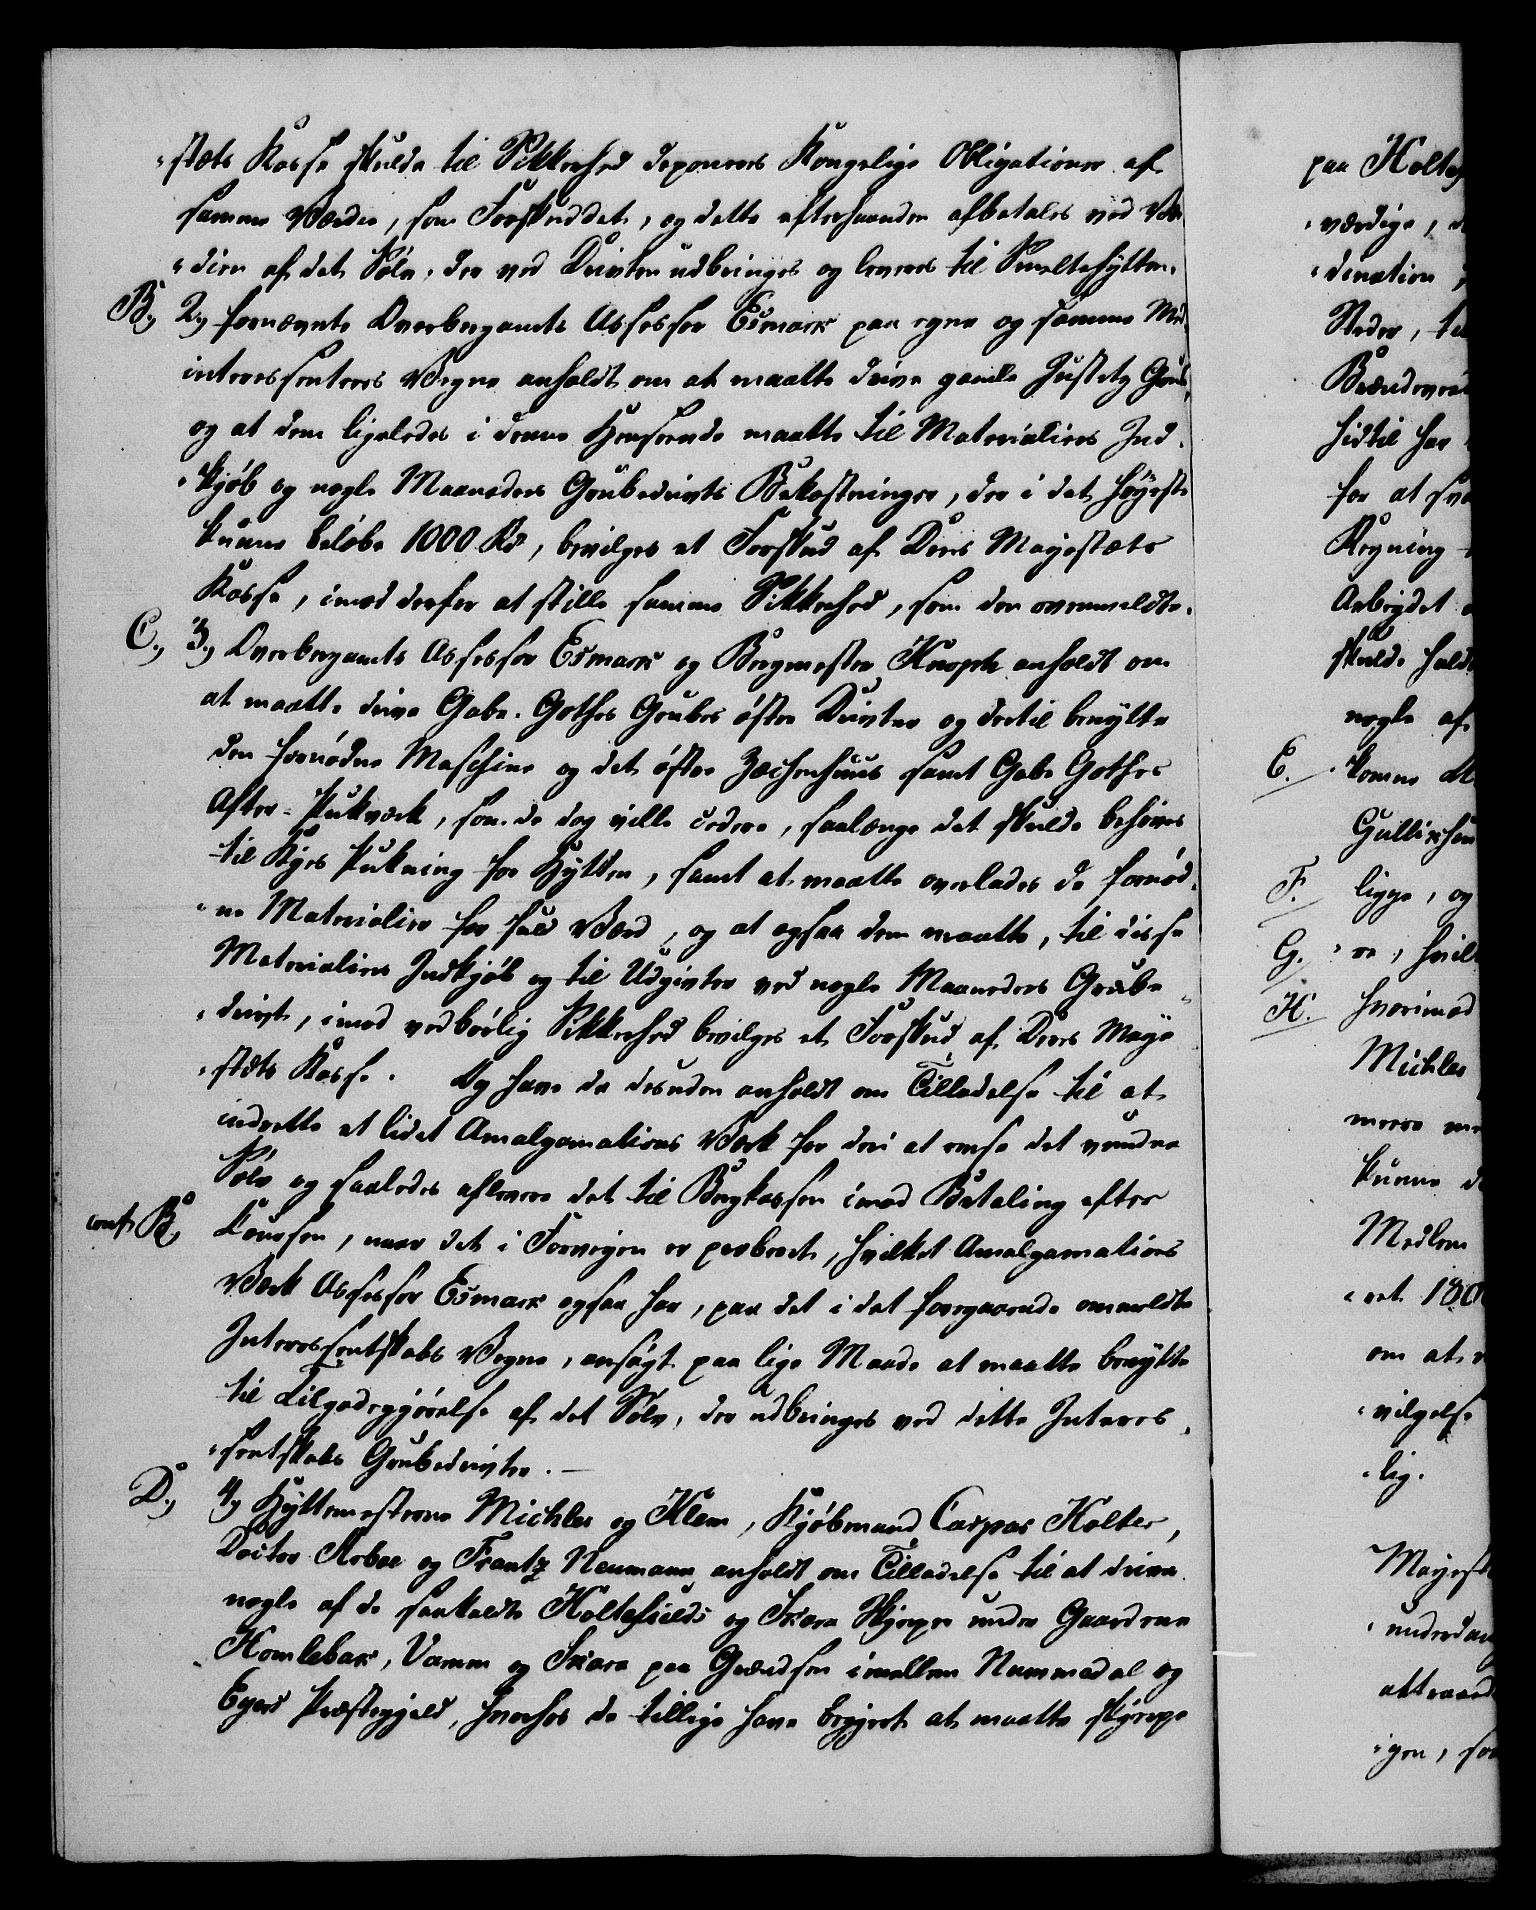 -stæts Kasse skulde til Sikkerhed deponeres Kongelige Obligationer af
samme Værdie, som Forskuddet, og dette efterhaanden afbetales ved Vær-
-dien af det Sølv, der ved Driften udbringes og leveres til Smeltehytten.
B., 2., fornævnte Overbergamts Assessor Esmark paa egne og samme Med-
interessenteres Vegne anholdt om at maatte drive gamle Justitz Grube,
og at dem ligeledes i denne Henseende maatte til Materialiers Ind-
-kjöb og nogle Maaneders Grubedrivts Bekostninger, der i det höyeste
kunne belöbe 1000 Rd, bevilges et Forskud af Deres Mayestæts
Kasse, imod derfor at stille samme Sikkerhed, som den ovenmeldte.
C., 3., Overbergamts Assessor Esmark og Bergmester Knoph anholdt om
at maatte drive Gabe Gottes Grubes östre Drivter og dertil benytte
den fornödne Maschine og det östre Zechenhuus samt Gabe Gottes
After-Pukværk, som de dog ville cedere, saalænge det skulde behöves
til Kyes Pukning for Hytten, samt at maatte overlades de fornöd-
-ne Materialier for fuld Værd, og at ogsaa dem maatte, til disse
Materialiers Indkjöb og til Udgivter ved nogle Maaneders Grube-
-drivt, imod vedbörlig Sikkerhed bevilges et Forskud af Deres Maye-
-stæts Kasse. Og have de desuden anholdt om Tilladelse til at
indrette et lidet Amalgamations Værk for deri at rense det vundne
Sölv og saaledes aflevere det til Bergkassen imod Betaling efter
conf. B., Coursen, naar det i Forveyen er proberet, hvilket Amalgamations
Værk Assessor Esmark ogsaa har, paa det i det foregaaende ommeldte
Interessentskabs Vegne, ansögt paa lige Maade at maatte benytte
til Tilgodegjörelse af det Sölv, der udbringes ved dette Interes-
-sentskabs Grubedrivter.
D., 4., Hyttemesterne Michler og Klem, Kjöbmand Caspar Holter,
Doctor Arboe og Frantz Neumann anholdt om Tilladelse til at drive
nogle af de saakaldte Holtefields og Skara Skjerpe under Gaardene
Homlebæk, Vamm og Skara paa Grændsen imellem Nummedal og
Egers Præstegjeld, hvorhos de tillige have begjert at maatte skjerpe
paa Holtef
-værdige,
-dination
Steder,
hidtil har
for at
Regning
Arbeydet
skulde hold
nogle af
E. komme
F. ligge, og
G. -re,
H. hvorimod
Michler
meere
kunne
Medlem
-ret 180
om at
-vilgelse
-lig.
Mayest
-underdan
attraaede
-gen,